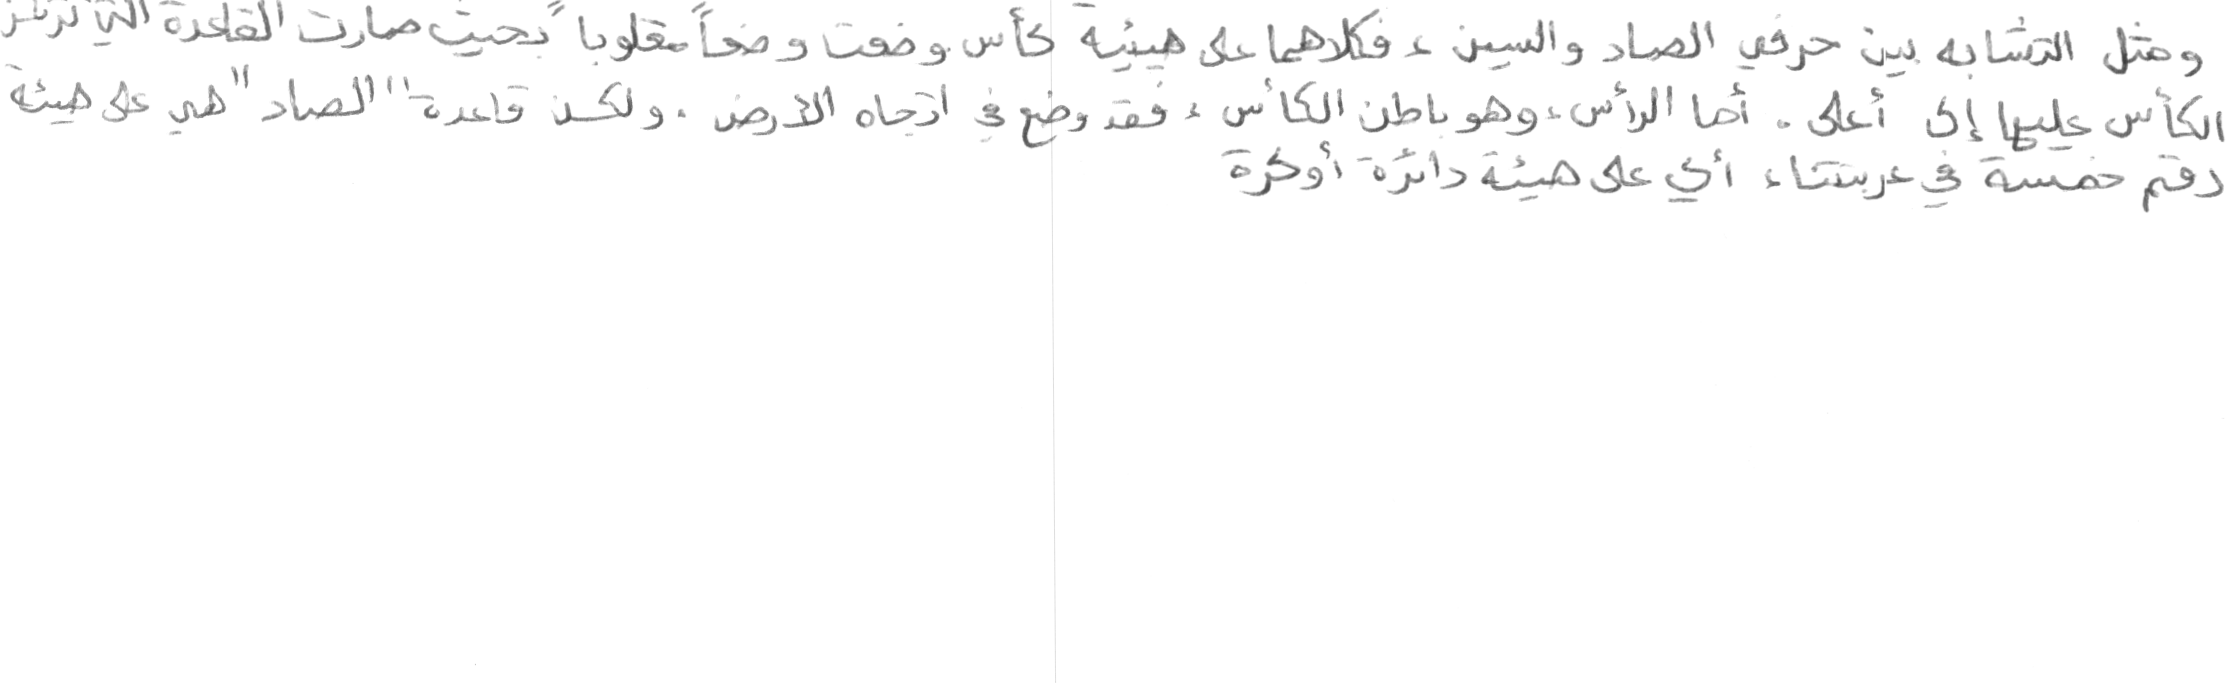 ومثل التشابه بين حرفي الصاد والسين ، فكلاهما على هيئة كأس وضعت وضعاً مقلوباً بحيث صارت القاعدة التي ترتكز
الكأس عليها إلى أعلى . أما الرأس ، وهو باطن الكأس ، فقد وضع في اتجاه الأرض . ولكن قاعدة "الصاد" هي على هيئة
رقم خمسة في عربيتنا ، أي على هيئة دائرة أو كرة